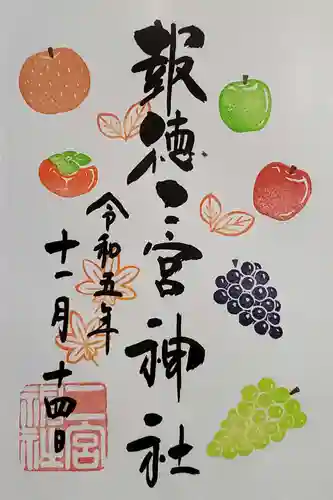 報徳二宮神社
令和五年
十一月十四日
二宮
神社